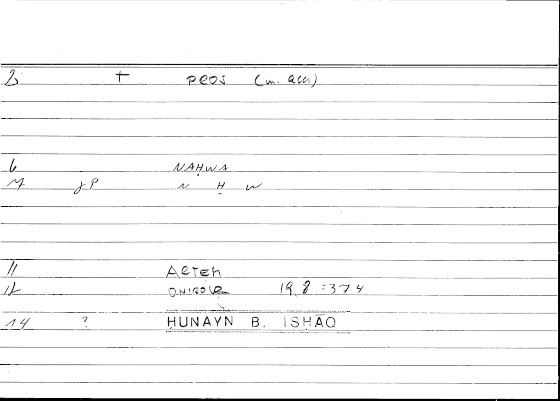 2 + PROS (m. acc)
6 NAHWA
7 P N Ḥ W
11 Artem
12 Oniro 19, 8 = 374
14 ? HUNAYN B. ISHAQ